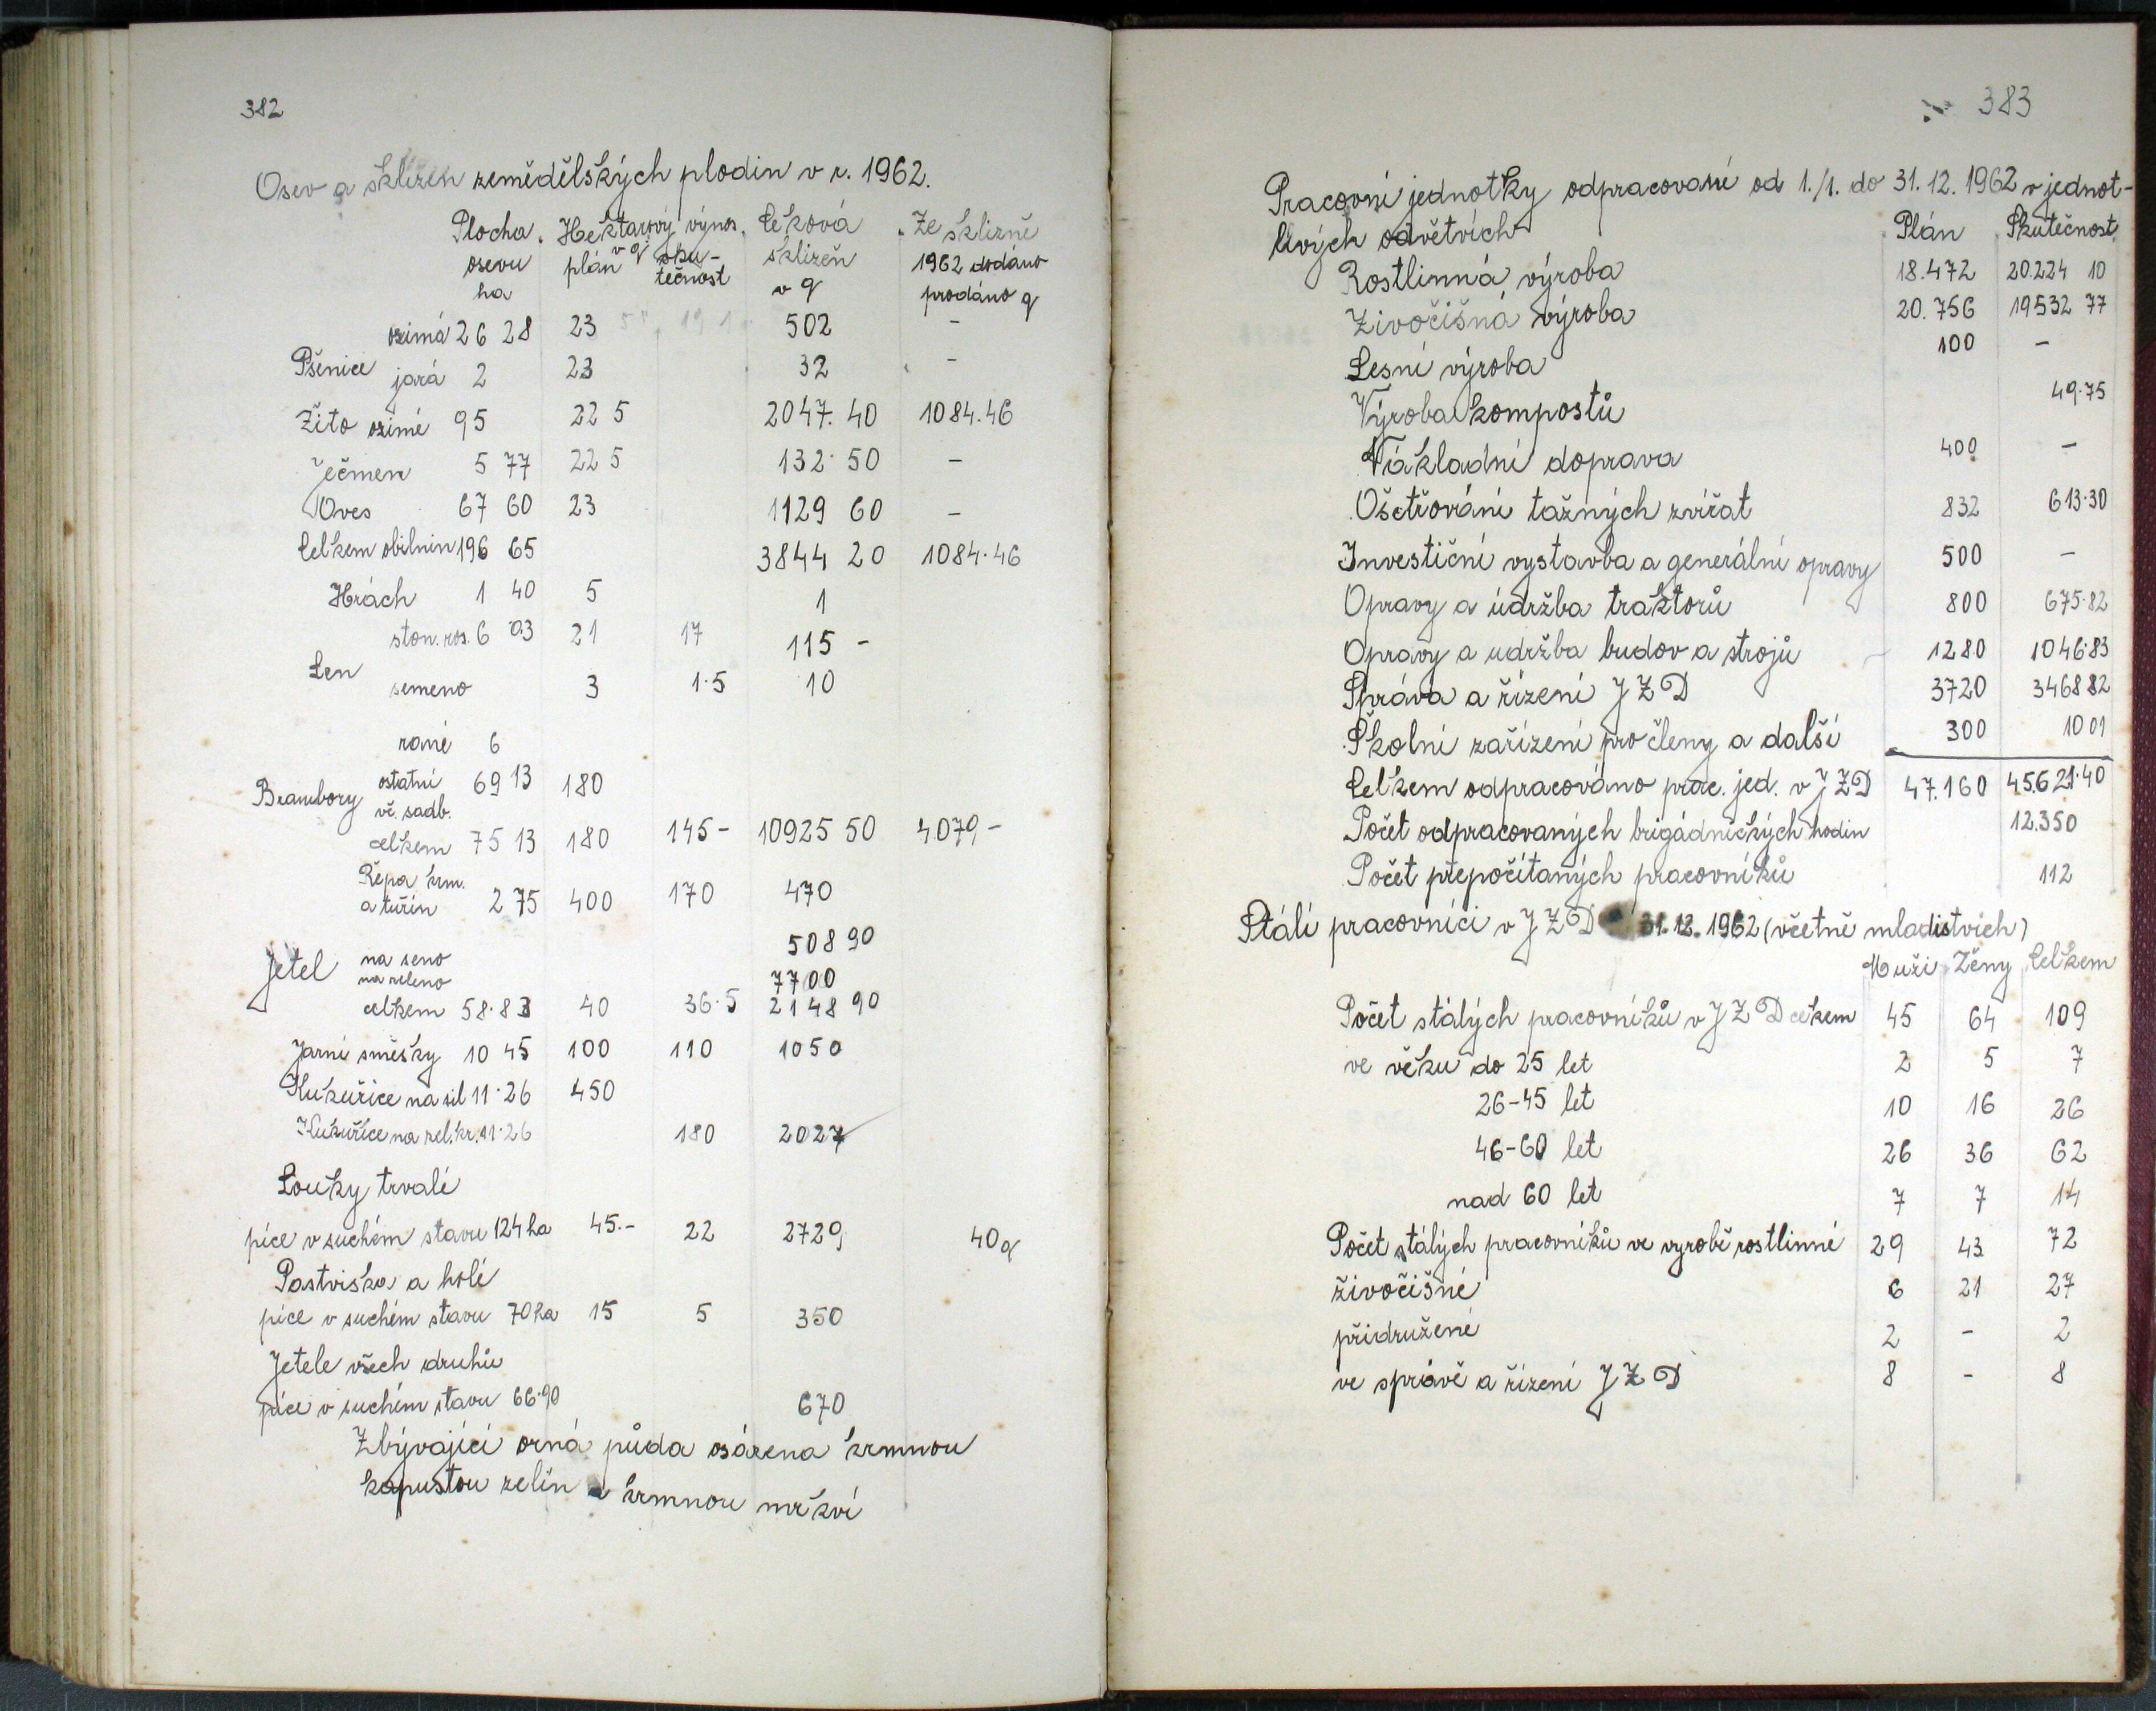 382
Osev a sklizen zemědělských plodin v r. 1962.
Plocha Hektarový výnos Celková Ze sklizně
osevu plán v q sku- sklizeň 1962 dodáno
ha tečnost v q prodáno q
ozimá 26 28 23 502 -
Pšenice jará 2 23 32 -
Žito ozimé 95 22 5 2047.40 1084.46
Ječmen 5 77 22 5 132.50 -
Oves 67 60 23 1129 60 -
Celkem obilnin 196 65 3844 20 1084.46
Hrách 1 40 5 1
ston. ros. 6 03 21 17 115 -
Len
semeno 3 1.5 10
rané 6
ostatní 69 13 180
Brambory
vč. sadb.
celkem 75 13 180 145- 10925 50 4079-
Řepa krm.
a tuřín 2 75 400 170 470
na seno 508 90
Jetel
na zeleno 7700
celkem 58.83 40 36.5 2148 90
Jarní směsky 10 45 100 110 1050
Kukuřice na sil 11.26 450
Kukuřice na zel. kr. 11.26 180 2027
Louky trvalé
píce v suchém stavu 124 ha 45.- 22 2729 40q
Pastviska a holé
píce v suchém stavu 70 ha 15 5 350
Jetele všech druhů
píce v suchém stavu 66.90 670
Zbývající orná půda osázena krmnou
kapustou zelín a krmnou mrkví
383
Pracovní jednotky odpracované od 1./1. do 31. 12. 1962 v jednot-
livých odvětvích Plán Skutečnost
Rostlinná výroba 18.472 20.224 10
Živočišná výroba 20.756 19532 77
Lesní výroba 100 -
Výroba kompostů 49.75
Nákladní doprava 400 -
Ošetřování tažných zvířat 832 613.30
Investiční vystavba a generální opravy 500 -
Opravy a údržba traktorů 800 675.82
Opravy a udržba budov a strojů 1280 1046.83
Správa a řízení J Z D 3720 3468 82
Školní zařízení pro členy a další 300 10 01
Celkem odpracováno prac. jed. v J Z D 47.160 45.621.40
Počet odpracovaných brigádnických hodin 12.350
Počet přepočítaných pracovníků 112
Stálí pracovníci v J Z D 31. 12. 1962 (včetně mladistvích)
Muži Ženy Celkem
Počet stálých pracovníků v J Z D cekem 45 64 109
ve věku do 25 let 2 5 7
26-45 let 10 16 26
46-60 let 26 36 62
nad 60 let 7 7 14
Počet stálých pracovníků ve vyrobě rostlinné 29 43 72
živočišné 6 21 27
přidružené 2 - 2
ve správě a řízení J Z D 8 - 8